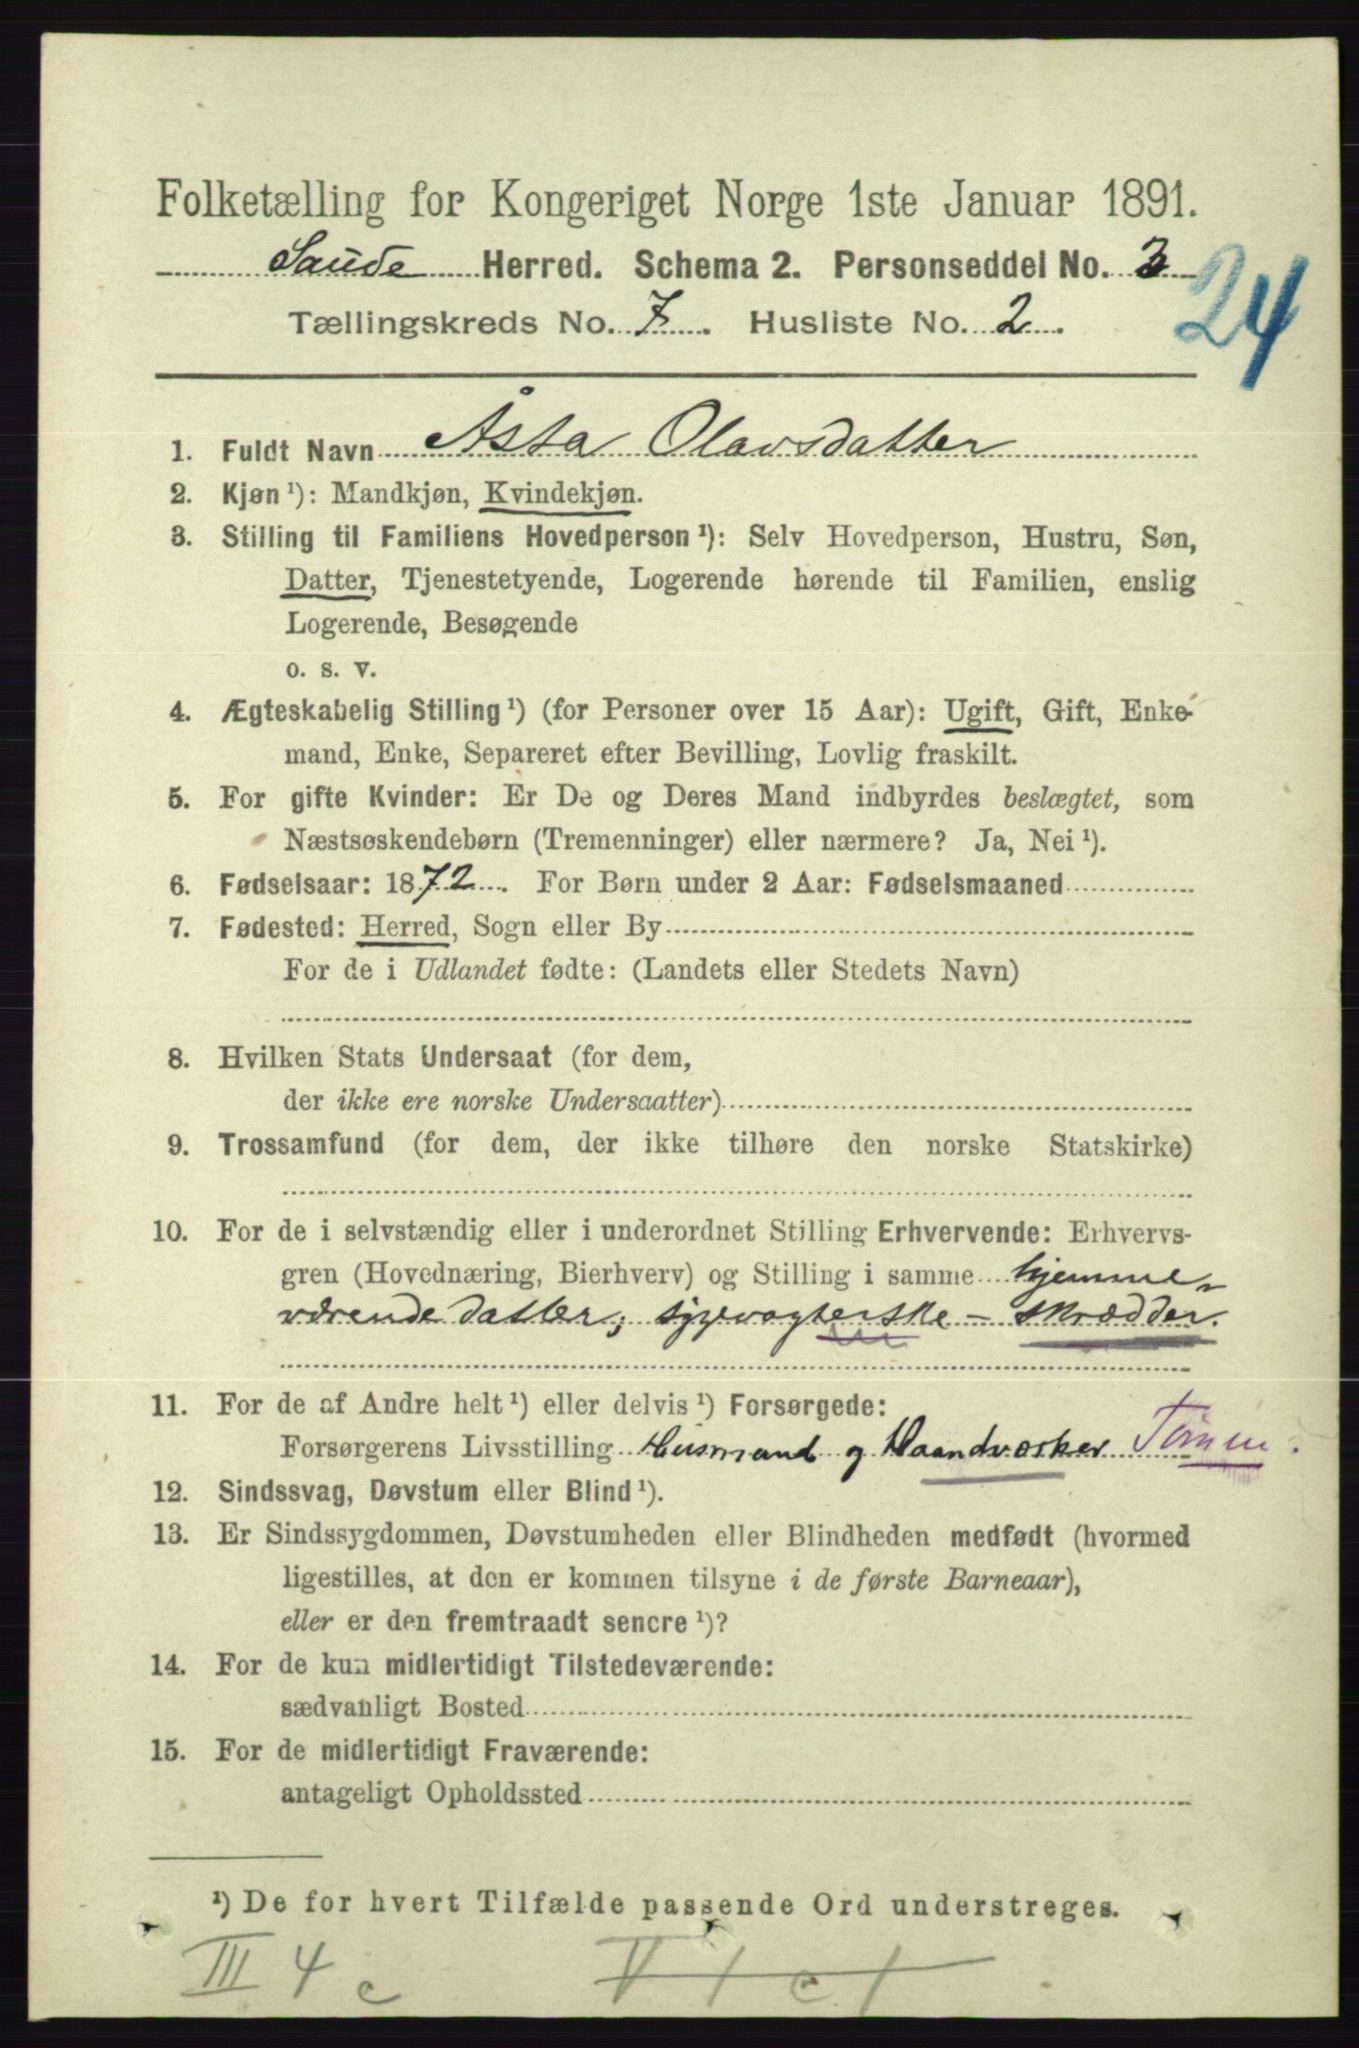 Folketælling for Kongeriget Norge 1ste Januar 1891.
Saude Herred. Schema 2. Personseddel No. 3
24
Tællingskreds No. 7. Husliste No. 2.
1. Fuldt Navn Åsta Olavsdatter
2. Kjøn ¹): Mandkjøn, Kvindekjøn.
3. Stilling til Familiens Hovedperson ¹): Selv Hovedperson, Hustru, Søn,
Datter, Tjenestetyende, Logerende hørende til Familien, enslig
Logerende, Besøgende
o. s. v.
4. Ægteskabelig Stilling ¹) (for Personer over 15 Aar): Ugift, Gift, Enke-
mand, Enke, Separeret efter Bevilling, Lovlig fraskilt.
5. For gifte Kvinder: Er De og Deres Mand indbyrdes beslægtet, som
Næstsøskendebørn (Tremenninger) eller nærmere? Ja, Nei ¹).
6. Fødselsaar: 1872. For Børn under 2 Aar: Fødselsmaaned
7. Fødested: Herred, Sogn eller By
For de i Udlandet fødte: (Landets eller Stedets Navn)
8. Hvilken Stats Undersaat (for dem,
der ikke ere norske Undersaatter)
9. Trossamfund (for dem, der ikke tilhøre den norske Statskirke)
10. For de i selvstændig eller i underordnet Stilling Erhvervende: Erhvervs-
gren (Hovednæring, Bierhverv) og Stilling i samme hjemme-
værende datter; sygevogterske - skrædder.
11. For de af Andre helt ¹) eller delvis ¹) Forsørgede:
Forsørgerens Livsstilling Husmand og Haandværker
12. Sindssvag, Døvstum eller Blind ¹).
13. Er Sindssygdommen, Døvstumheden eller Blindheden medfødt (hvormed
ligestilles, at den er kommen tilsyne i de første Barneaar),
eller er den fremtraadt senere ¹)?
14. For de kun midlertidigt Tilstedeværende:
sædvanligt Bosted
15. For de midlertidigt Fraværende:
antageligt Opholdssted
¹) De for hvert Tilfælde passende Ord understreges.
III 4 c V 1 c 1